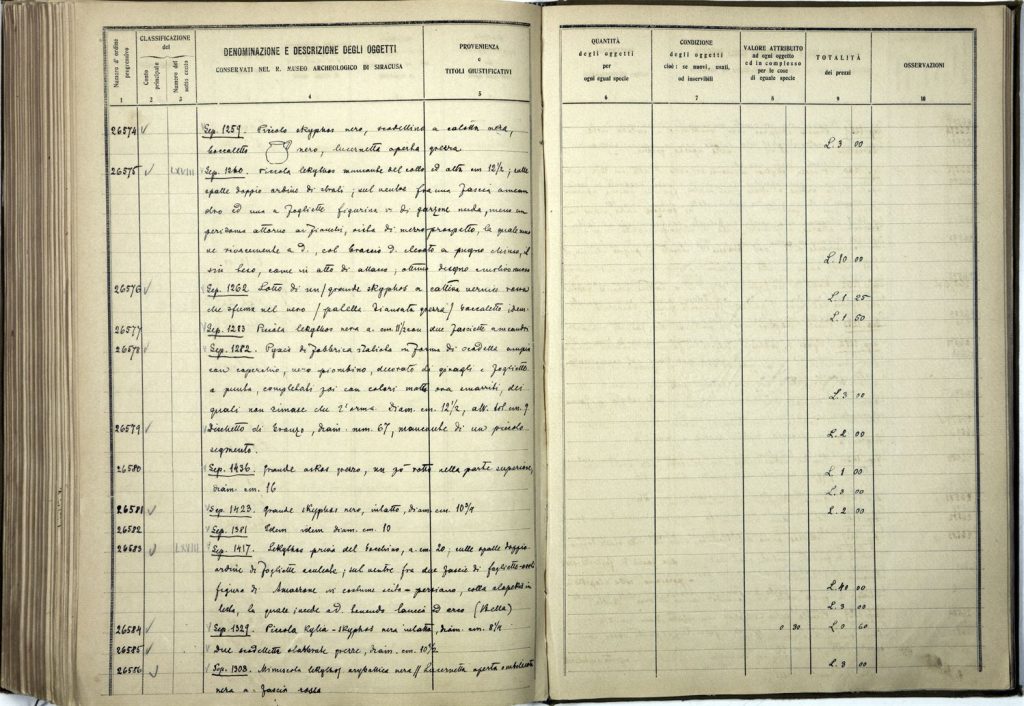 Numero d'ordine progressivo
CLASSIFICAZIONE del
Conto principale
Numero del sotto conto
DENOMINAZIONE E DESCRIZIONE DEGLI OGGETTI
CONSERVATI NEL R. MUSEO ARCHEOLOGICO DI SIRACUSA
PROVENIENZA
e
TITOLI GIUSTIFICATIVI
1 2 3 4 5
26574 Sep. 1259. Piccolo skyphos nero, scodellina a calotta nera,
boccaletto nero, lucernetta aperta grezza
26575 LXVIII Sep. 1260. Piccola lekythos mancante del collo ed alta cm 12½; sulle
spalle doppio ordine di ; sul ventre fra una fascia a mean
dro ed una a foglioline figurina di garzone nuda, meno un
perizoma attorno ai fianchi, vista di mezzo prospetto, la quale muo
ve a d., col braccio d. elevato a pugno chiuso, il
sin. teso, come in atto di ; ottimo disegno
26576 Sep. 1262 Lotto di un grande skyphos a cattiva vernice rossa
che sfuma nel nero / patella biansata grezza / boccaletto idem
26577 Sep. 1283 Piccola lekythos nera a. cm. 11½ con due fasciette a meandro
26578 Sep. 1282. Pyxis di fabbrica italiota in forma di scodella ampia
con coperchio, nero piombino, decorato di e foglioline
a punta, completati poi con colori matti ora smarriti, dei
quali non rimase che l'orma. Diam. cm. 12½, alt. tot. cm. 9.
26579 Dischetto di bronzo, diam. mm. 67, mancante di un piccolo
segmento.
26580 Sep. 1436. Grande askos grezzo, un po' rotto nella parte superiore,
diam. cm. 16
26581 Sep. 1423. Grande skyphos nero, intatto, diam. cm. 10¾
26582 Sep. 1381 Idem idem diam. cm. 10
26583 LXVIII Sep. 1417. Lekythos priva del bocchino, a. cm. 20; sulle spalle doppio
ordine di foglioline ; sul ventre fra due fascie di foglioline
figura di Amazzone in costume scito-persiano, colla alopekis in
testa, la quale incede a D. tenendo lancia ed arco (Bella)
26584 Sep. 1329. Piccola kylix-skyphos nera intatta, diam. cm. 8¼
26585 Due scodellette grezze, diam. cm. 10½
26586 Sep. 1303. Minuscola lekythos aryballica nera // Lucernetta aperta
nera a fascia rossa
QUANTITÀ
degli oggetti
per
ogni egual specie
CONDIZIONE
degli oggetti
cioè: se nuovi, usati,
od inservibili
VALORE ATTRIBUITO
ad ogni oggetto
ed in complesso
per le cose
di eguale specie
TOTALITÀ
dei prezzi
OSSERVAZIONI
6 7 8 9 10
L. 3 00
L. 10 00
L. 1 25
L. 1 50
L. 3 00
L. 2 00
L. 1 00
L. 3 00
L. 2 00
L. 40 00
L. 3 00
0 30 L. 0 60
L. 3 00